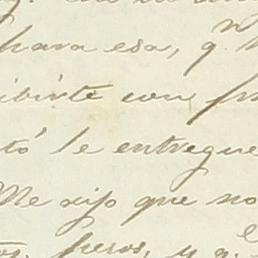 para esa, q.
ibirte con
tó le entregue
Me dijo que no
pesos, y q.